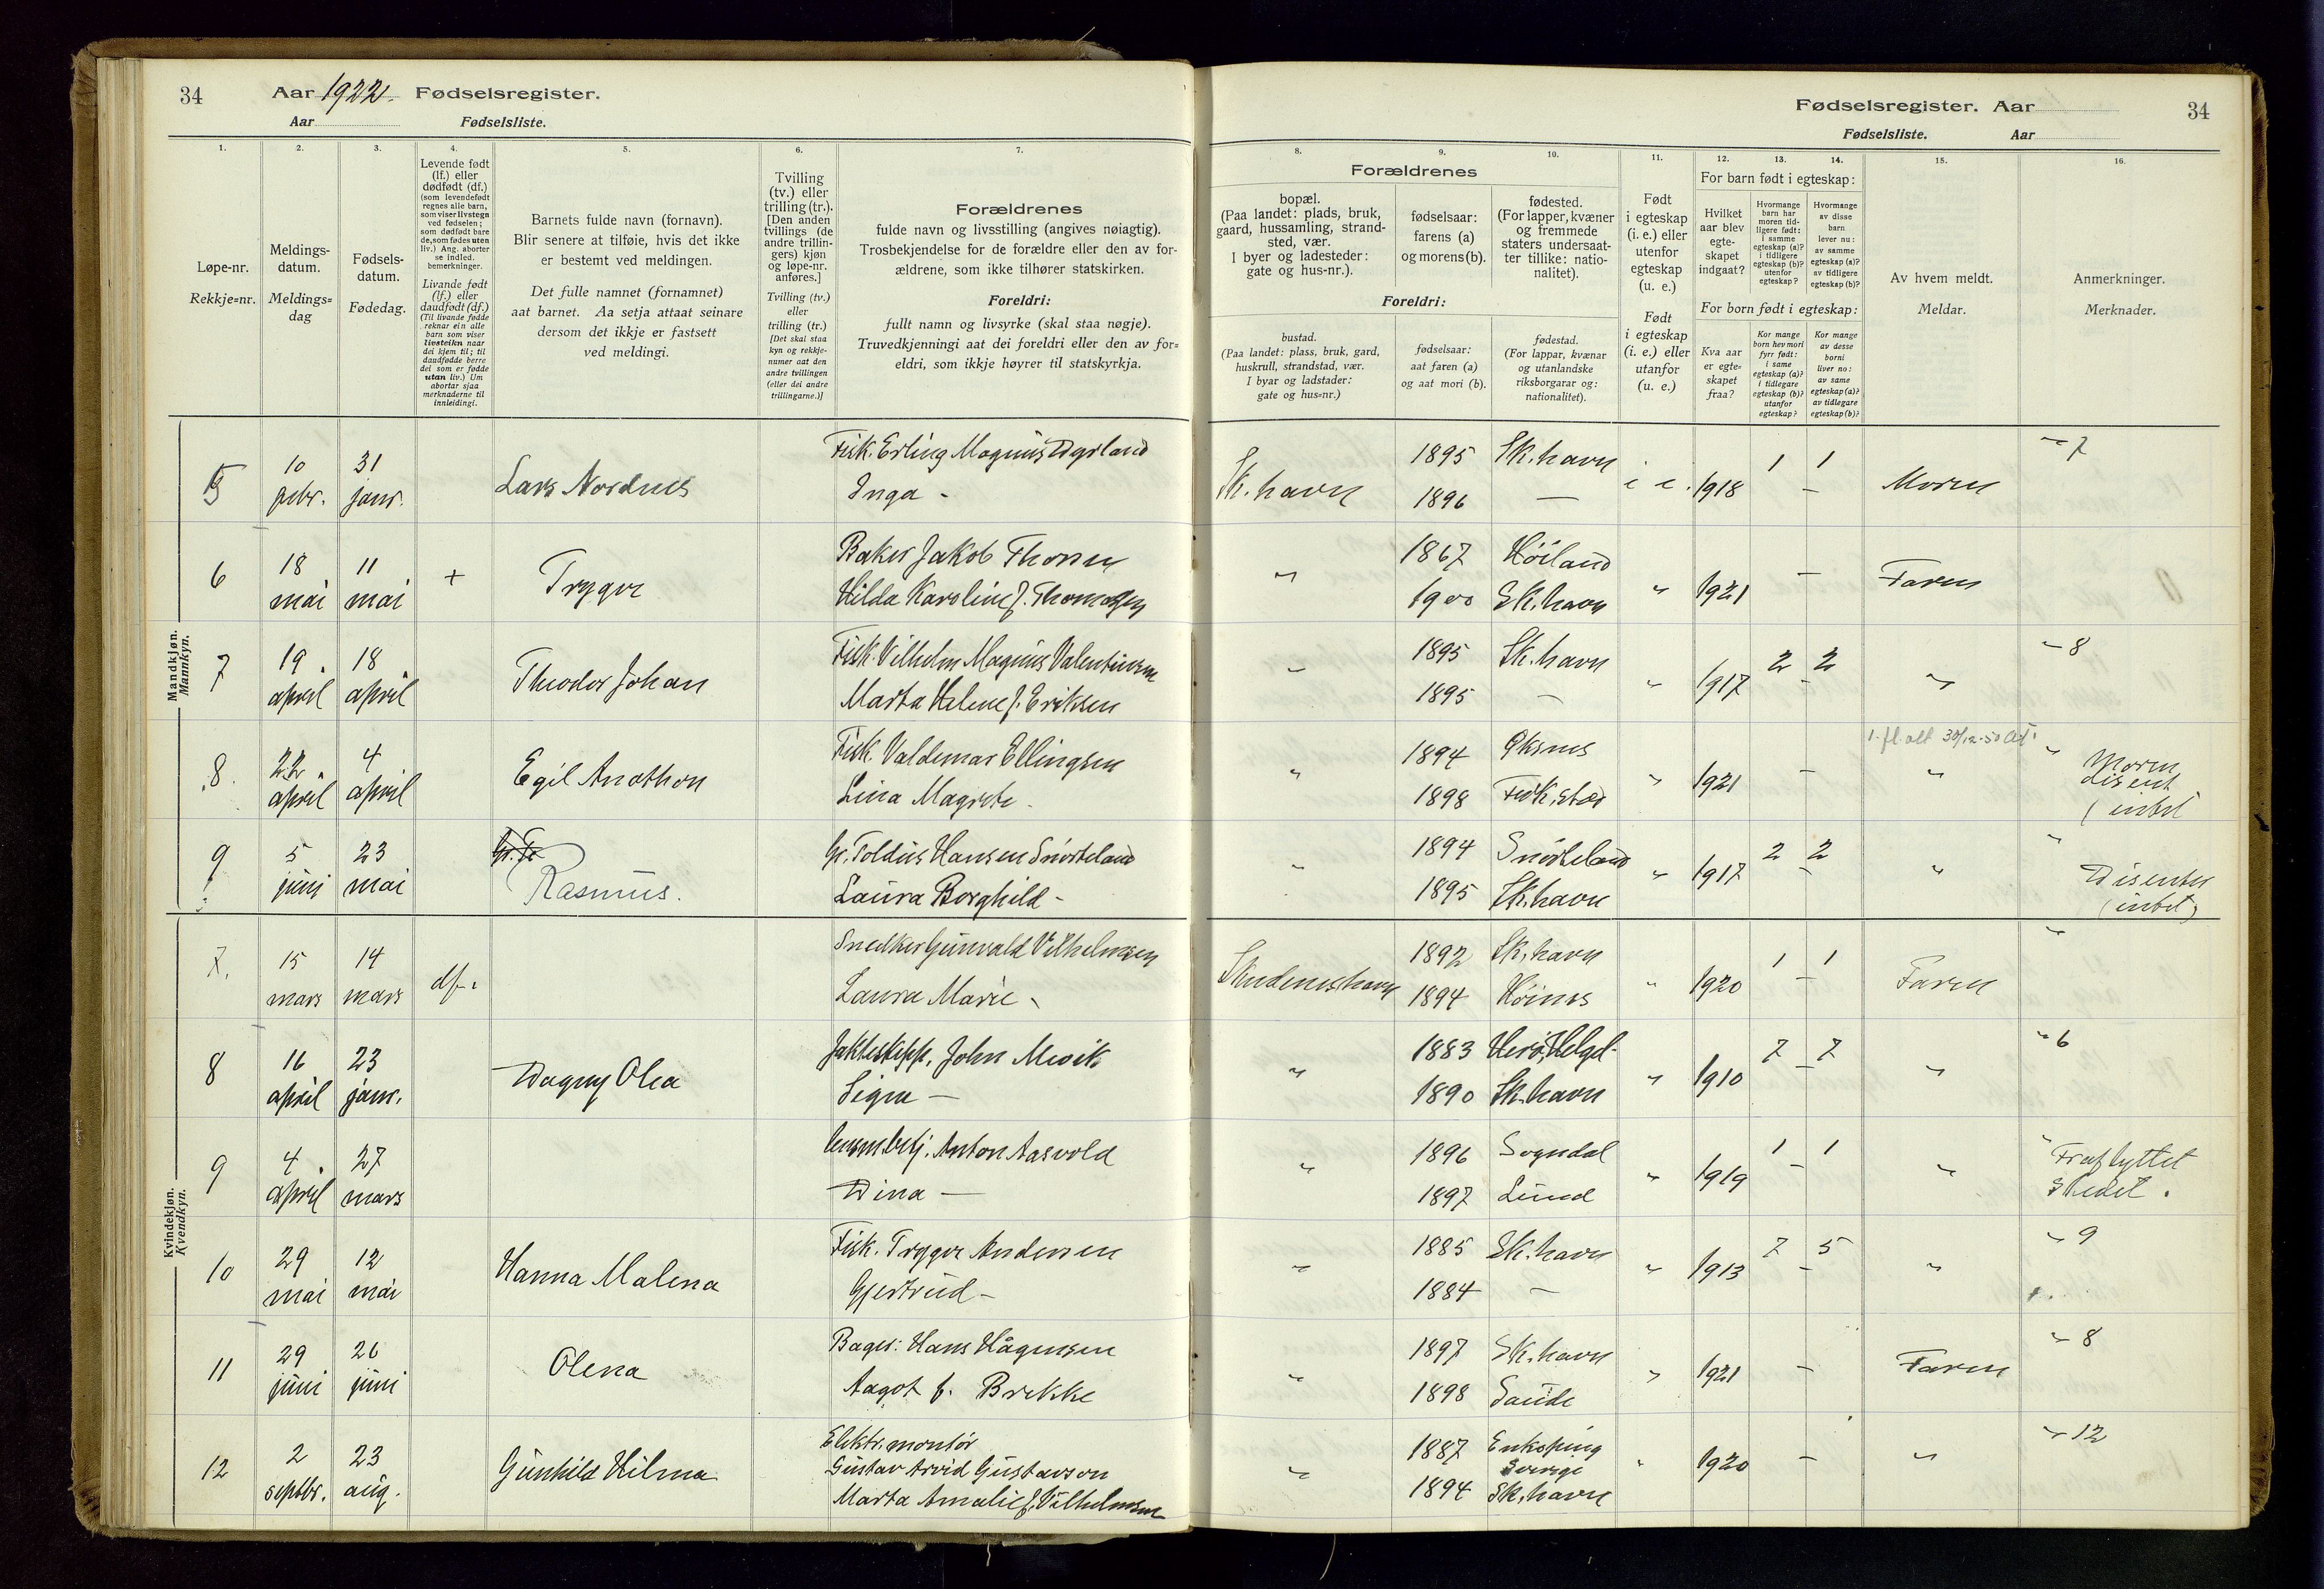 34 Aar 1922. Fødselsregister.
Aar Fødselsliste.
Fødselsregister. Aar 34
Fødselsliste. Aar
1. 2. 3. 4. 5. 6. 7.
8. 9. 10. 11. 12. 13. 14. 15. 16.
Løpe-nr.
Rekkje=nr.
Meldings-
datum.
Meldings=
dag
Fødsels-
datum.
Fødedag.
Levende født
(lf.) eller
dødfødt (df.)
(som levendefødt
regnes alle barn,
som viser livstegn
ved fødselen;
som dødfødt bare
de, som fødes uten
liv.) Ang. aborter
se indled.
bemerkninger.
Livande født
(lf.) eller
daudfødt (df.)
(Til livande fødde
reknar ein alle
barn som viser
livsteikn naar
dei kjem til; til
daudfødde berre
dei som er fødde
utan liv.) Um
abortar sjaa
merknaderne til
innleidingi.
Barnets fulde navn (fornavn).
Blir senere at tilføie, hvis det ikke
er bestemt ved meldingen.
Det fulle namnet (fornamnet)
aat barnet. Aa setja attaat seinare
dersom det ikkje er fastsett
ved meldingi.
Tvilling
(tv.) eller
trilling (tr.).
[Den anden
tvillings (de
andre trillin-
gers) kjøn
og løpe-nr.
anføres.]
Tvilling (tv.)
eller
trilling (tr.)
[Det skal staa
kyn og rekkje-
numer aat den
andre tvillingen
(eller dei andre
trillingarne.)]
Forældrenes
fulde navn og livsstilling (angives nøiagtig).
Trosbekjendelse for de forældre eller den av for-
ældrene, som ikke tilhører statskirken.
Foreldri:
fullt namn og livsyrke (skal staa nøgje).
Truvedkjenningi aat dei foreldri eller den av for=
eldri, som ikkje høyrer til statskyrkja.
Forældrenes
bopæl.
(Paa landet: plads, bruk,
gaard, hussamling, strand-
sted, vær.
I byer og ladesteder:
gate og hus-nr.).
fødselsaar:
farens (a)
og morens (b).
fødested.
(For lapper, kvæner
og fremmede
staters undersaat-
ter tillike: natio-
nalitet).
Foreldri:
bustad.
(Paa landet: plass, bruk, gard,
huskrull, strandstad, vær.
I byar og ladstader:
gate og hus=nr.)
fødselsaar:
aat faren (a)
og aat mori (b).
fødestad.
(For lappar, kvænar
og utanlandske
riksborgarar og:
nationalitet).
Født
i egteskap
(i. e.) eller
utenfor
egteskap
(u. e.)
Født
i egteskap
(i. e.) eller
utanfor
(u. e.)
For barn født i egteskap:
Hvilket
aar blev
egte-
skapet
indgaat?
Hvormange
barn har
moren tid-
ligere født:
i samme
egteskap (a)?
i tidligere
egteskap (b)?
utenfor
egteskap?
Hvormange
av disse
barn
lever nu:
av samme
egteskap (a)?
av tidligere
egteskap (b)?
For born født i egteskap:
Kva aar
er egte=
skapet
fraa?
Kor mange
born hev mori
fyrr født:
i same
egteskap (a)?
i tidlegare
egteskap (b)?
utanfor
egteskap?
Kor mange
av desse
borni
liver no:
av same
egteskap (a)?
av tidlegare
egteskap (b)?
Av hvem meldt.
Meldar.
Anmerkninger.
Merknader.
Mandkjøn.
Mannkyn.
5 10 febr. 31 janr. Lars Nordnes Fisk. Erling Magnus Dyrland Inga - Sk. havn 1895 1896 Sk. havn — i e. 1918 1 1 Moren 7
6 18 mai 11 mai + Trygve Baker Jakob Thorsen Hilda Karoline f. Thomasen 1867 1900 Høiland Sk. havn 1921 - Faren
7 19 april 18 april Theodor Johan Fisk. Vilhelm Magnus Valentinsen Marta Helene f. Eriksen 1895 1895 Sk. havn — 1917 2 2 8
8. 22. april 4 april Egil Anathon Fisk. Valdemar Ellingsen Lina Magrete - 1894 1898 Øksnes 1921 - Moren disent
9 5 juni 23 mai Rasmus. Toldus Hansen Snørteland Laura Borghild - 1894 1895 Snørteland Sk. havn 1917 2 2 Disenter
Kvindekjøn.
Kvendkyn.
7. 15 mars 14 mars df. Snedker Gunvald Vilhelmsen Laura Marie - Skudeneshavn 1892 1894 Sk. havn Høines 1920 1 1 Faren
8 16 april 23 janr. Dagny Olea Jakteskipp. John Mevik Signe — 1883 1890 Herø, Helgel. Sk. havn 1910 7 7 6
9 4 april 27 mars Anton Aasvold Dina — 1896 1897 Sogndal Lund 1919 1 1 Fraflyttet Stedet.
10 29 mai 12 mai Hanna Malena Fisk. Trygve Andersen Gjertrud - 1885 1884 Sk. havn — 1913 7 5 9
11 29 juni 26 juni Olena Bager: Hans Hågensen Aagot f. Brekke 1897 1898 Sk. havn Saude 1921 - Faren 8
12 2 septbr. 23 aug. Gunhild Hilma Elektr. montør Gustav Arvid Gustavson Marta Amalie f. Vilhelmsen 1887 1894 Enkoping Sverige Sk. havn 1920 - 12